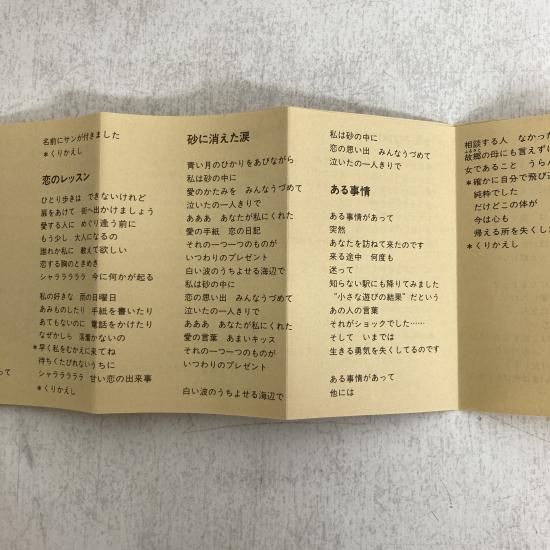 って
名前にサンが付きました
＊くりかえし
恋のレッスン
ひとり歩きは できないけれど
扉をあけて 街へ出かけましょう
愛する人に めぐり逢う前に
もう少し 大人になるの
誰れか私に 教えて欲しい
恋する胸のときめき
シャラララララ 今に何かが起る
私の好きな 雨の日曜日
あみものしたり 手紙を書いたり
あてもないのに 電話をかけたり
なぜかしら 落着かないの
＊早く私をむかえに来てね
待ちくたびれないうちに
シャラララララ 甘い恋の出来事
＊くりかえし
砂に消えた涙
青い月のひかりをあびながら
私は砂の中に
愛のかたみを みんなうづめて
泣いたの一人きりで
あああ あなたが私にくれた
愛の手紙 恋の日記
それの一つ一つのものが
いつわりのプレゼント
白い波のうちよせる海辺で
私は砂の中に
恋の思い出 みんなうづめて
泣いたの一人きりで
あああ あなたが私にくれた
愛の言葉 あまいキッス
それの一つ一つのものが
いつわりのプレゼント
白い波のうちよせる海辺で
私は砂の中に
恋の思い出 みんなうづめて
泣いたの一人きりで
ある事情
ある事情があって
突然
あなたを訪ねて来たのです
来る途中 何度も
迷って
知らない駅にも降りてみました
“小さな遊びの結果”だという
あの人の言葉
それがショックでした……
そして いまでは
生きる勇気を失くしてるのです
ある事情があって
他には
相談する人 なかった
故郷の母にも言えずに
女であること うらん
＊確かに自分で飛び
純粋でした
だけどこの体が
今は心も
帰える所を失くし
＊くりかえし